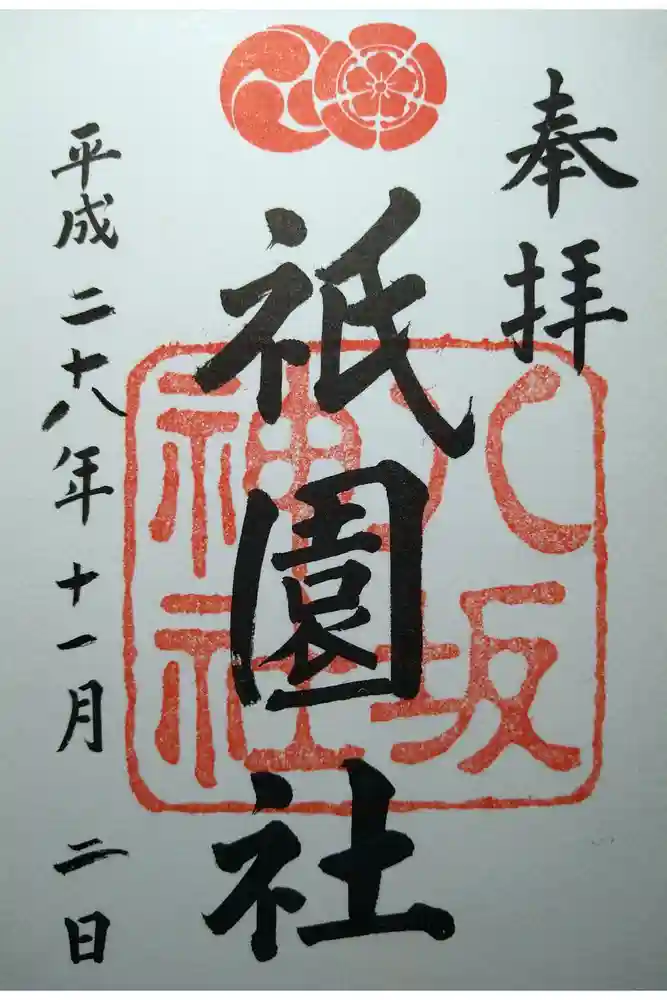 奉拝
祇園社
八坂
神社
平成二十八年十一月二日